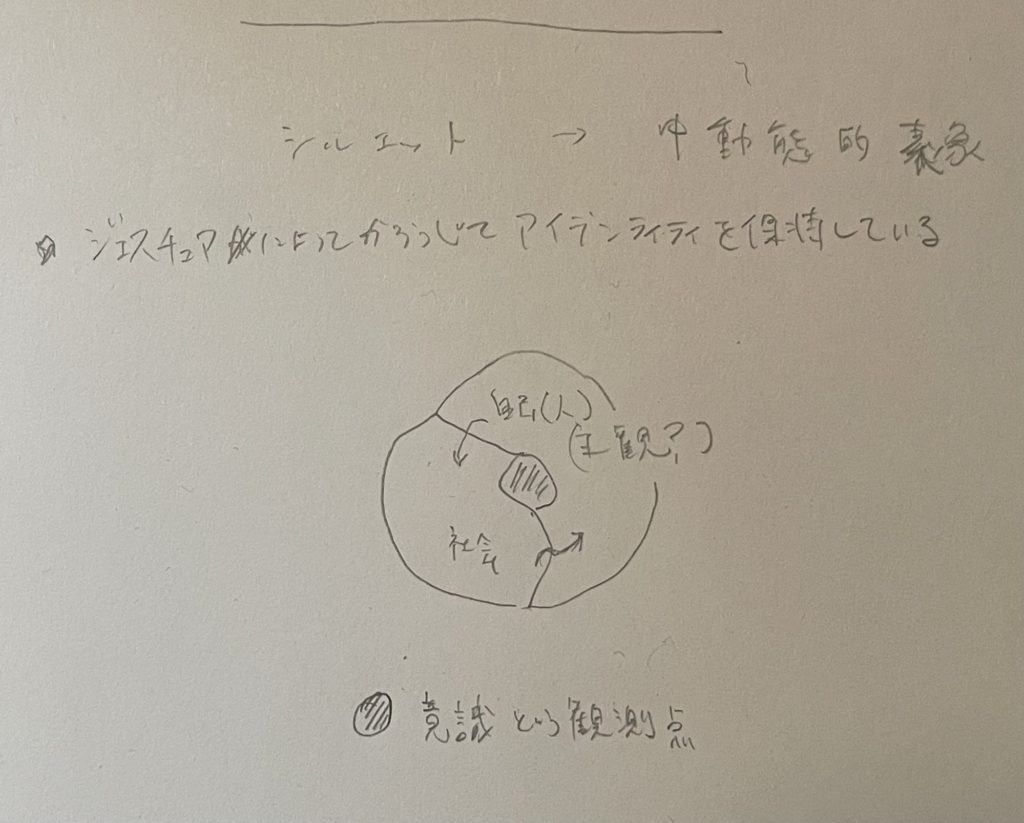 シルエット → 中動態的表象
ジェスチュアによってかろうじてアイデンティティを保持している
自己(人)
(主観?)
社会
意識という観測点